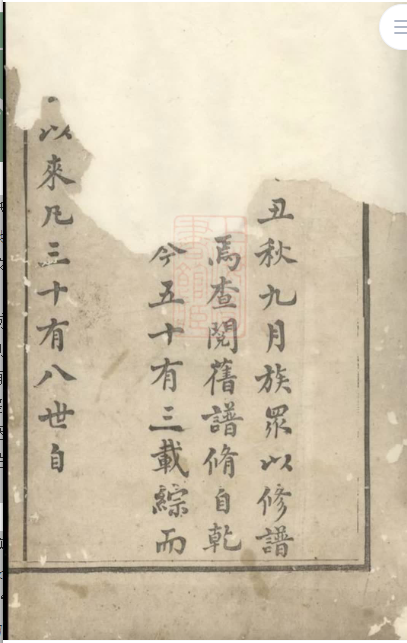 丑秋九月族眾以修譜
焉查閱舊譜脩自乾
今五十有三載綜而
以來凡三十有八世自